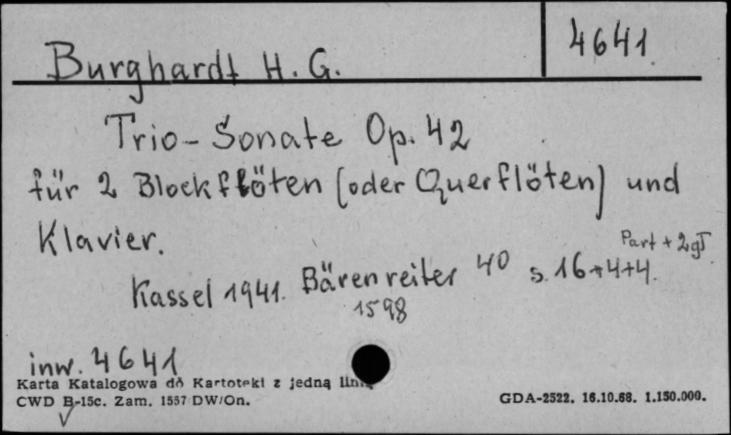 Burghardt H. G.
4641
Trio-Sonate Op. 42
für 2 Blockflöten (oder Querflöten) und
Klavier.
Part + 2 gł
Kassel 1941. Bärenreiter 4° s. 16+4+4.
1598
inw. 4641
Karta Katalogowa do Kartoteki z jedną linią
CWD B-15c. Zam. 1557 DW/On.
GDA-2522. 16.10.68. 1.150.000.